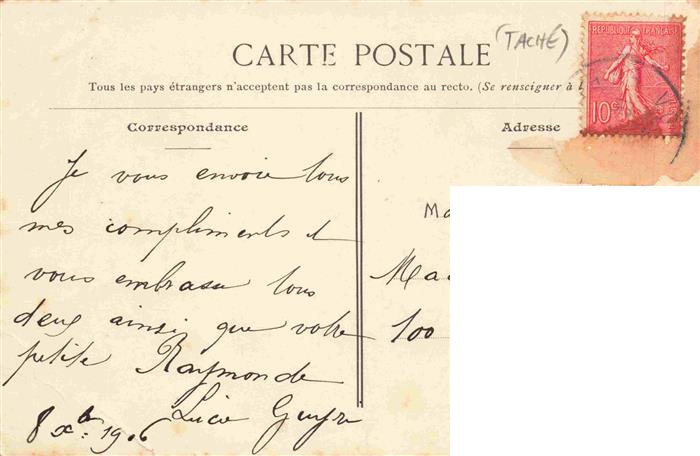 (TACHÉ)
CARTE POSTALE
RÉPUBLIQUE FRANÇAISE
10c
Tous les pays étrangers n'acceptent pas la correspondance au recto. (Se renseigner à
Correspondance
Je vous envoie tous
mes compliments et
vous embrasse tous
deux ainsi que votre
petite Raymonde
Lucie
8 Xb: 1906
Adresse
Ma
100